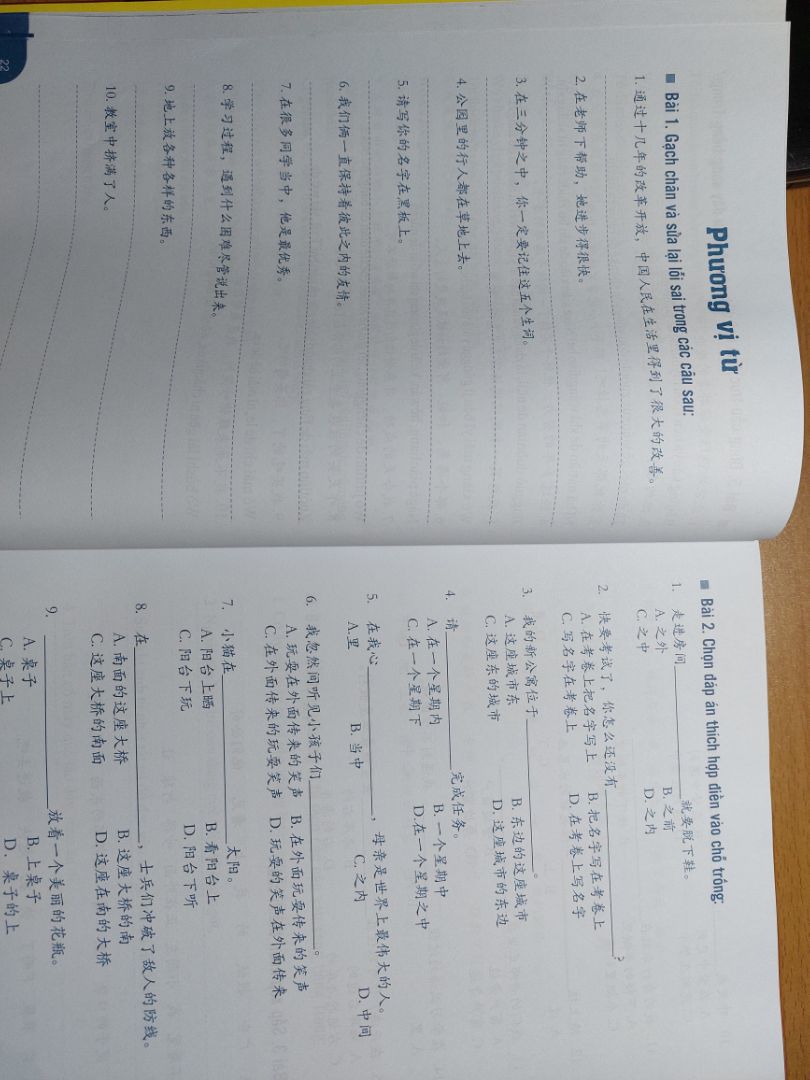 Phương vị từ
■ Bài 1. Gạch chân và sửa lại lỗi sai trong các câu sau:
1. 通过十几年的改革开放，中国人民在生活里得到了很大的改善。
2. 在老师下帮助，她进步得很快。
3. 在三分钟之中，你一定要记住这五个生词。
4. 公园里的行人都在草地上去。
5. 请写你的名字在黑板上。
6. 我们俩一直保持着彼此之内的友情。
7. 在很多同学当中，他是最优秀。
8. 学习过程，遇到什么困难尽管说出来。
9. 地上放各种各样的东西。
10. 教室中挤满了人。
22
■ Bài 2. Chọn đáp án thích hợp điền vào chỗ trống:
1. 走进房间____________就要脱下鞋。
A. 之外 B. 之前
C. 之中 D. 之内
2. 快要考试了，你怎么还没有____________?
A. 在考卷上把名字写上 B. 把名字写在考卷上
C. 写名字在考卷上 D. 在考卷上写名字
3. 我的新公寓位于____________。
A. 这座城市东 B. 东边的这座城市
C. 这座东的城市 D. 这座城市的东边
4. 请____________完成任务。
A. 在一个星期内 B. 一个星期中
C. 在一个星期下 D. 在一个星期之中
5. 在我心____________，母亲是世界上最伟大的人。
A. 里 B. 当中 C. 之内 D. 中间
6. 我忽然间听见小孩子们____________。
A. 玩耍在外面传来的笑声 B. 在外面玩耍传来的笑声
C. 在外面传来的玩耍笑声 D. 玩耍的笑声在外面传来
7. 小猫在____________太阳。
A. 阳台上晒 B. 看阳台上
C. 阳台下玩 D. 阳台下听
8. 在____________，士兵们冲破了敌人的防线。
A. 南面的这座大桥 B. 这座大桥的南
C. 这座大桥的南面 D. 这座在南的大桥
9. ____________放着一个美丽的花瓶。
A. 桌子 B. 上桌子
C. 桌子上 D. 桌子的上